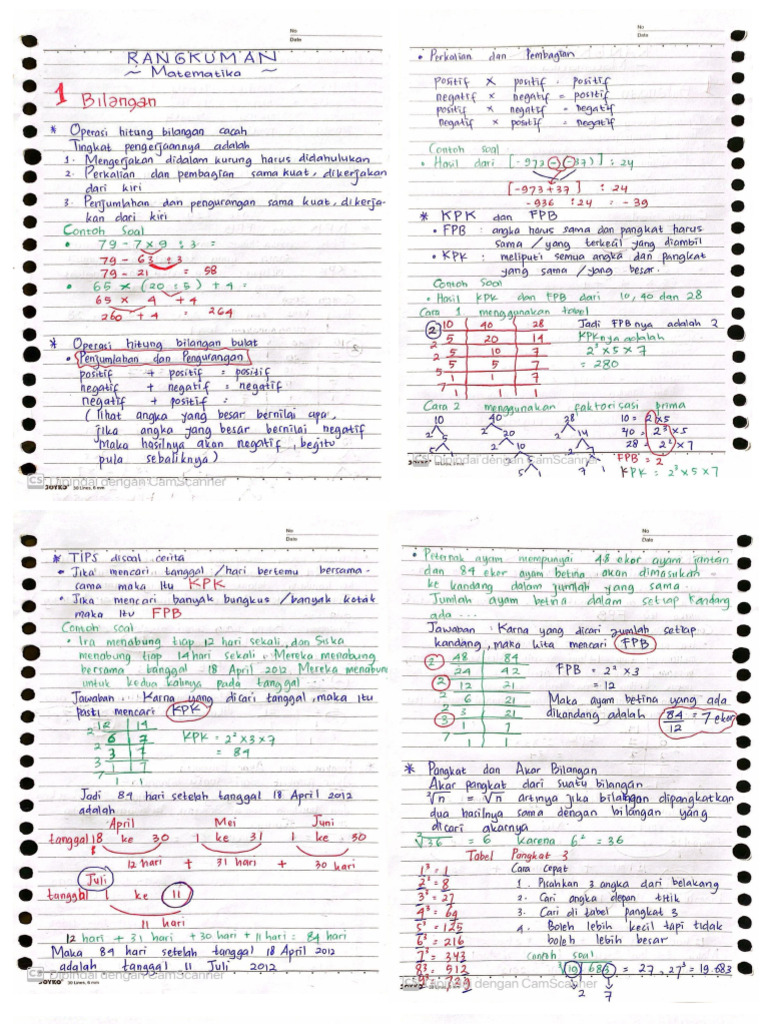 No
Date
RANGKUMAN
~ Matematika ~
1 Bilangan
* Operasi hitung bilangan cacah
Tingkat pengerjaannya adalah
1. Mengerjakan didalam kurung harus didahulukan
2. Perkalian dan pembagian sama kuat, dikerjakan
dari kiri
3. Penjumlahan dan pengurangan sama kuat, dikerja-
kan dari kiri
Contoh Soal
• 79 - 7 x 9 : 3 =
79 - 63 : 3
79 - 21 = 58
• 65 x (20 : 5) + 4 =
65 x 4 + 4
260 + 4 = 264
* Operasi hitung bilangan bulat
• Penjumlahan dan Pengurangan
positif + positif = positif
negatif + negatif = negatif
negatif + positif =
(lihat angka yang besar bernilai apa,
jika angka yang besar bernilai negatif
Maka hasilnya akan negatif, begitu
pula sebaliknya)
CS Dipindai dengan CamScanner
JOYKO 30 Lines, 8 mm
No
Date
• Perkalian dan Pembagian
positif x positif = positif
negatif x negatif = positif
positif x negatif = negatif
negatif x positif = negatif
Contoh soal
• Hasil dari [-973 - (-37)] : 24
[-973 + 37] : 24
-936 : 24 = -39
* KPK dan FPB
• FPB : angka harus sama dan pangkat harus
sama / yang terkecil yang diambil
• KPK : meliputi semua angka dan pangkat
yang sama / yang besar.
Contoh Soal
• Hasil KPK dan FPB dari 10, 40 dan 28
Cara 1 menggunakan tabel
2 10 40 28 Jadi FPBnya adalah 2
2 5 20 14 KPKnya adalah
2 5 10 7 2³ x 5 x 7
5 5 5 7 = 280
7 1 1 7
1 1 1
Cara 2 menggunakan faktorisasi prima
10 40 28 10 = 2 x 5
2 5 2 20 2 14 40 = 2³ x 5
2 10 2 7 28 = 2² x 7
FPB = 2
2 5 KPK = 2³ x 5 x 7
CS Dipindai dengan CamScanner
No
Date
* TIPS disoal cerita
• Jika mencari tanggal / hari bertemu bersama-
sama maka itu KPK
• Jika mencari banyak bungkus / banyak kotak
maka itu FPB
Contoh soal
• Ira menabung tiap 12 hari sekali, dan Siska
menabung tiap 14 hari sekali. Mereka menabung
bersama tanggal 18 April 2012 Mereka menabung
untuk kedua kalinya pada tanggal...
Jawaban : Karna yang dicari tanggal, maka itu
pasti mencari KPK
2 12 14
2 6 7 KPK = 2² x 3 x 7
3 3 7 = 84
7 1 7
1 1
Jadi 84 hari setelah tanggal 18 April 2012
adalah
April Mei Juni
tanggal 18 ke 30 1 ke 31 1 ke 30
12 hari + 31 hari + 30 hari
Juli
tanggal 1 ke 11
11 hari
12 hari + 31 hari + 30 hari + 11 hari = 84 hari
Maka 84 hari setelah tanggal 18 April 2012
adalah tanggal 11 Juli 2012
CS Dipindai dengan CamScanner
JOYKO 30 Lines, 8 mm
No
Date
• Peternak ayam mempunyai 48 ekor ayam jantan
dan 84 ekor ayam betina akan dimasukan
ke kandang dalam jumlah yang sama.
Jumlah ayam betina dalam setiap kandang
ada...
Jawaban : Karna yang dicari jumlah setiap
kandang, maka kita mencari FPB
2 48 84
2 24 42 FPB = 2² x 3
2 12 21 = 12
2 6 21 Maka ayam betina yang ada
3 3 21 dikandang adalah 84/12 = 7 ekor
7 1 7
1 1
* Pangkat dan Akar Bilangan
Akar pangkat dari suatu bilangan
²√n = √n artinya jika bilangan dipangkatkan
dua hasilnya sama dengan bilangan yang
dicari akarnya
²√36 = 6 karena 6² = 36
Tabel Pangkat 3
1³ = 1 Cara cepat
2³ = 8 1. Pisahkan 3 angka dari belakang
3³ = 27 2. Cari angka depan titik
4³ = 64 3. Cari di tabel pangkat 3
5³ = 125 4. Boleh lebih kecil tapi tidak
6³ = 216 boleh lebih besar
7³ = 343 Contoh soal
8³ = 512 ³√19.683 = 27. 27³ = 19.683
9³ = 729 2 7
CS Dipindai dengan CamScanner